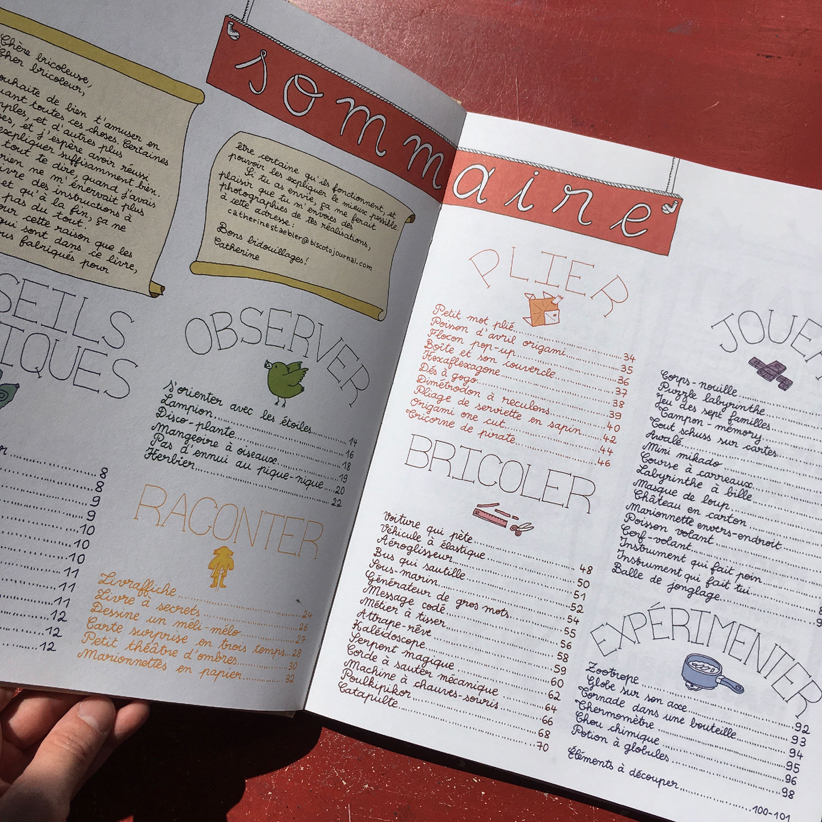 sommaire
Chère bricoleuse,
Cher bricoleur,
ouhaite de bien t'amuser en
uant toutes ces choses. Certaines
ples, et d'autres plus
es, et j'espère avoir réussi
expliquer suffisamment bien.
tout te dire, quand j'avais
rien ne m'énervait plus
ivre des instructions à
et qu'à la fin, ça ne
pas du tout.
our cette raison que les
qui sont dans ce livre,
us fabriqués pour
être certaine qu'ils fonctionnent, et
pouvoir les expliquer le mieux possible
Si tu as envie, ça me ferait
plaisir que tu m'envoies des
photographies de tes réalisations,
à cette adresse :
catherinestaebler@biscotojournal.com
Bons bidouillages!
Catherine
SEILS
IQUES
8
8
9
9
10
10
10
11
11
11
12
12
12
OBSERVER
S'orienter avec les étoiles 14
Lampion 16
Disco-plante 18
Mangeoire à oiseaux 19
Pas d'ennui au pique-nique 20
Herbier 22
RACONTER
Livraffiche 24
Livre à secrets 26
Dessine un méli-mélo 27
Carte surprise en trois temps 28
Petit théâtre d'ombres 30
Marionnettes en papier 32
PLIER
Petit mot plié 34
Poisson d'avril origami 35
Flocon pop-up 36
Boîte et son couvercle 37
Hexaflexagone 38
Dés à gogo 39
Dimétrodon à reculons 40
Pliage de serviette en sapin 42
Origami one cut 44
Tricorne de pirate 46
BRICOLER
Voiture qui pète 48
Véhicule à élastique 50
Aéroglisseur 51
Bus qui sautille 52
Sous-marin 54
Générateur de gros mots 55
Message codé 56
Métier à tisser 58
Attrape-rêve 59
Kaléidoscope 60
Serpent magique 62
Corde à sauter mécanique 64
Machine à chauves-souris 66
Poulkipikor 68
Catapulte 70
JOUER
Corps-nouille
Puzzle labyrinthe
Jeu des sept familles
Tampon-memory
Tout schuss sur cartes
Awalé
Mini mikado
Course à carreaux
Labyrinthe à bille
Masque de loup
Château en carton
Marionnette envers-endroit
Poisson volant
Cerf-volant
Instrument qui fait poin
Instrument qui fait tui
Balle de jonglage
EXPÉRIMENTER
Zootrope 92
Globe sur son axe 93
Tornade dans une bouteille 94
Thermomètre 95
Chou chimique 96
Potion à globules 98
Éléments à découper 100-101